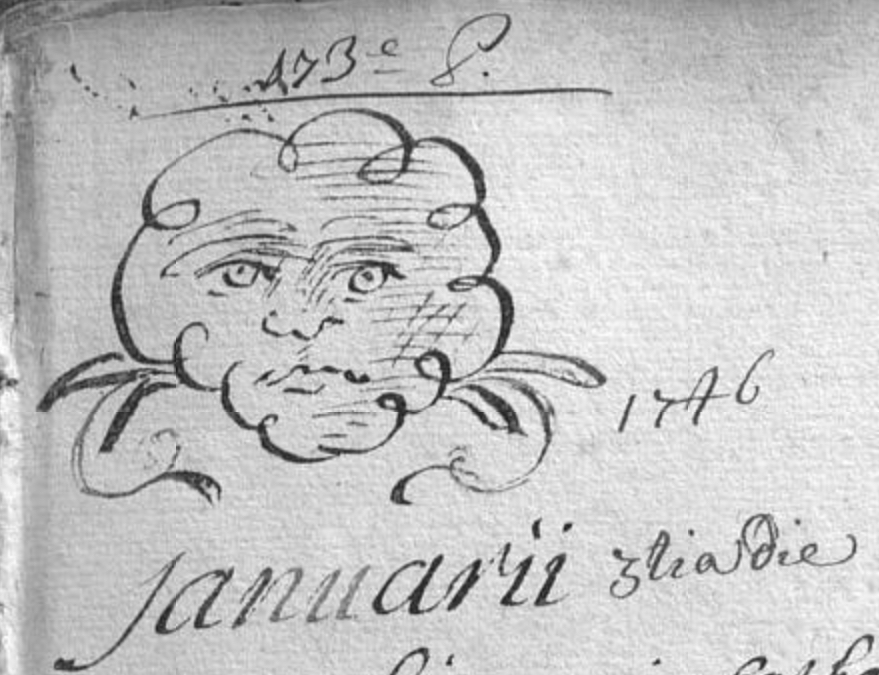 173e P.
1746
Januarii 3tia die